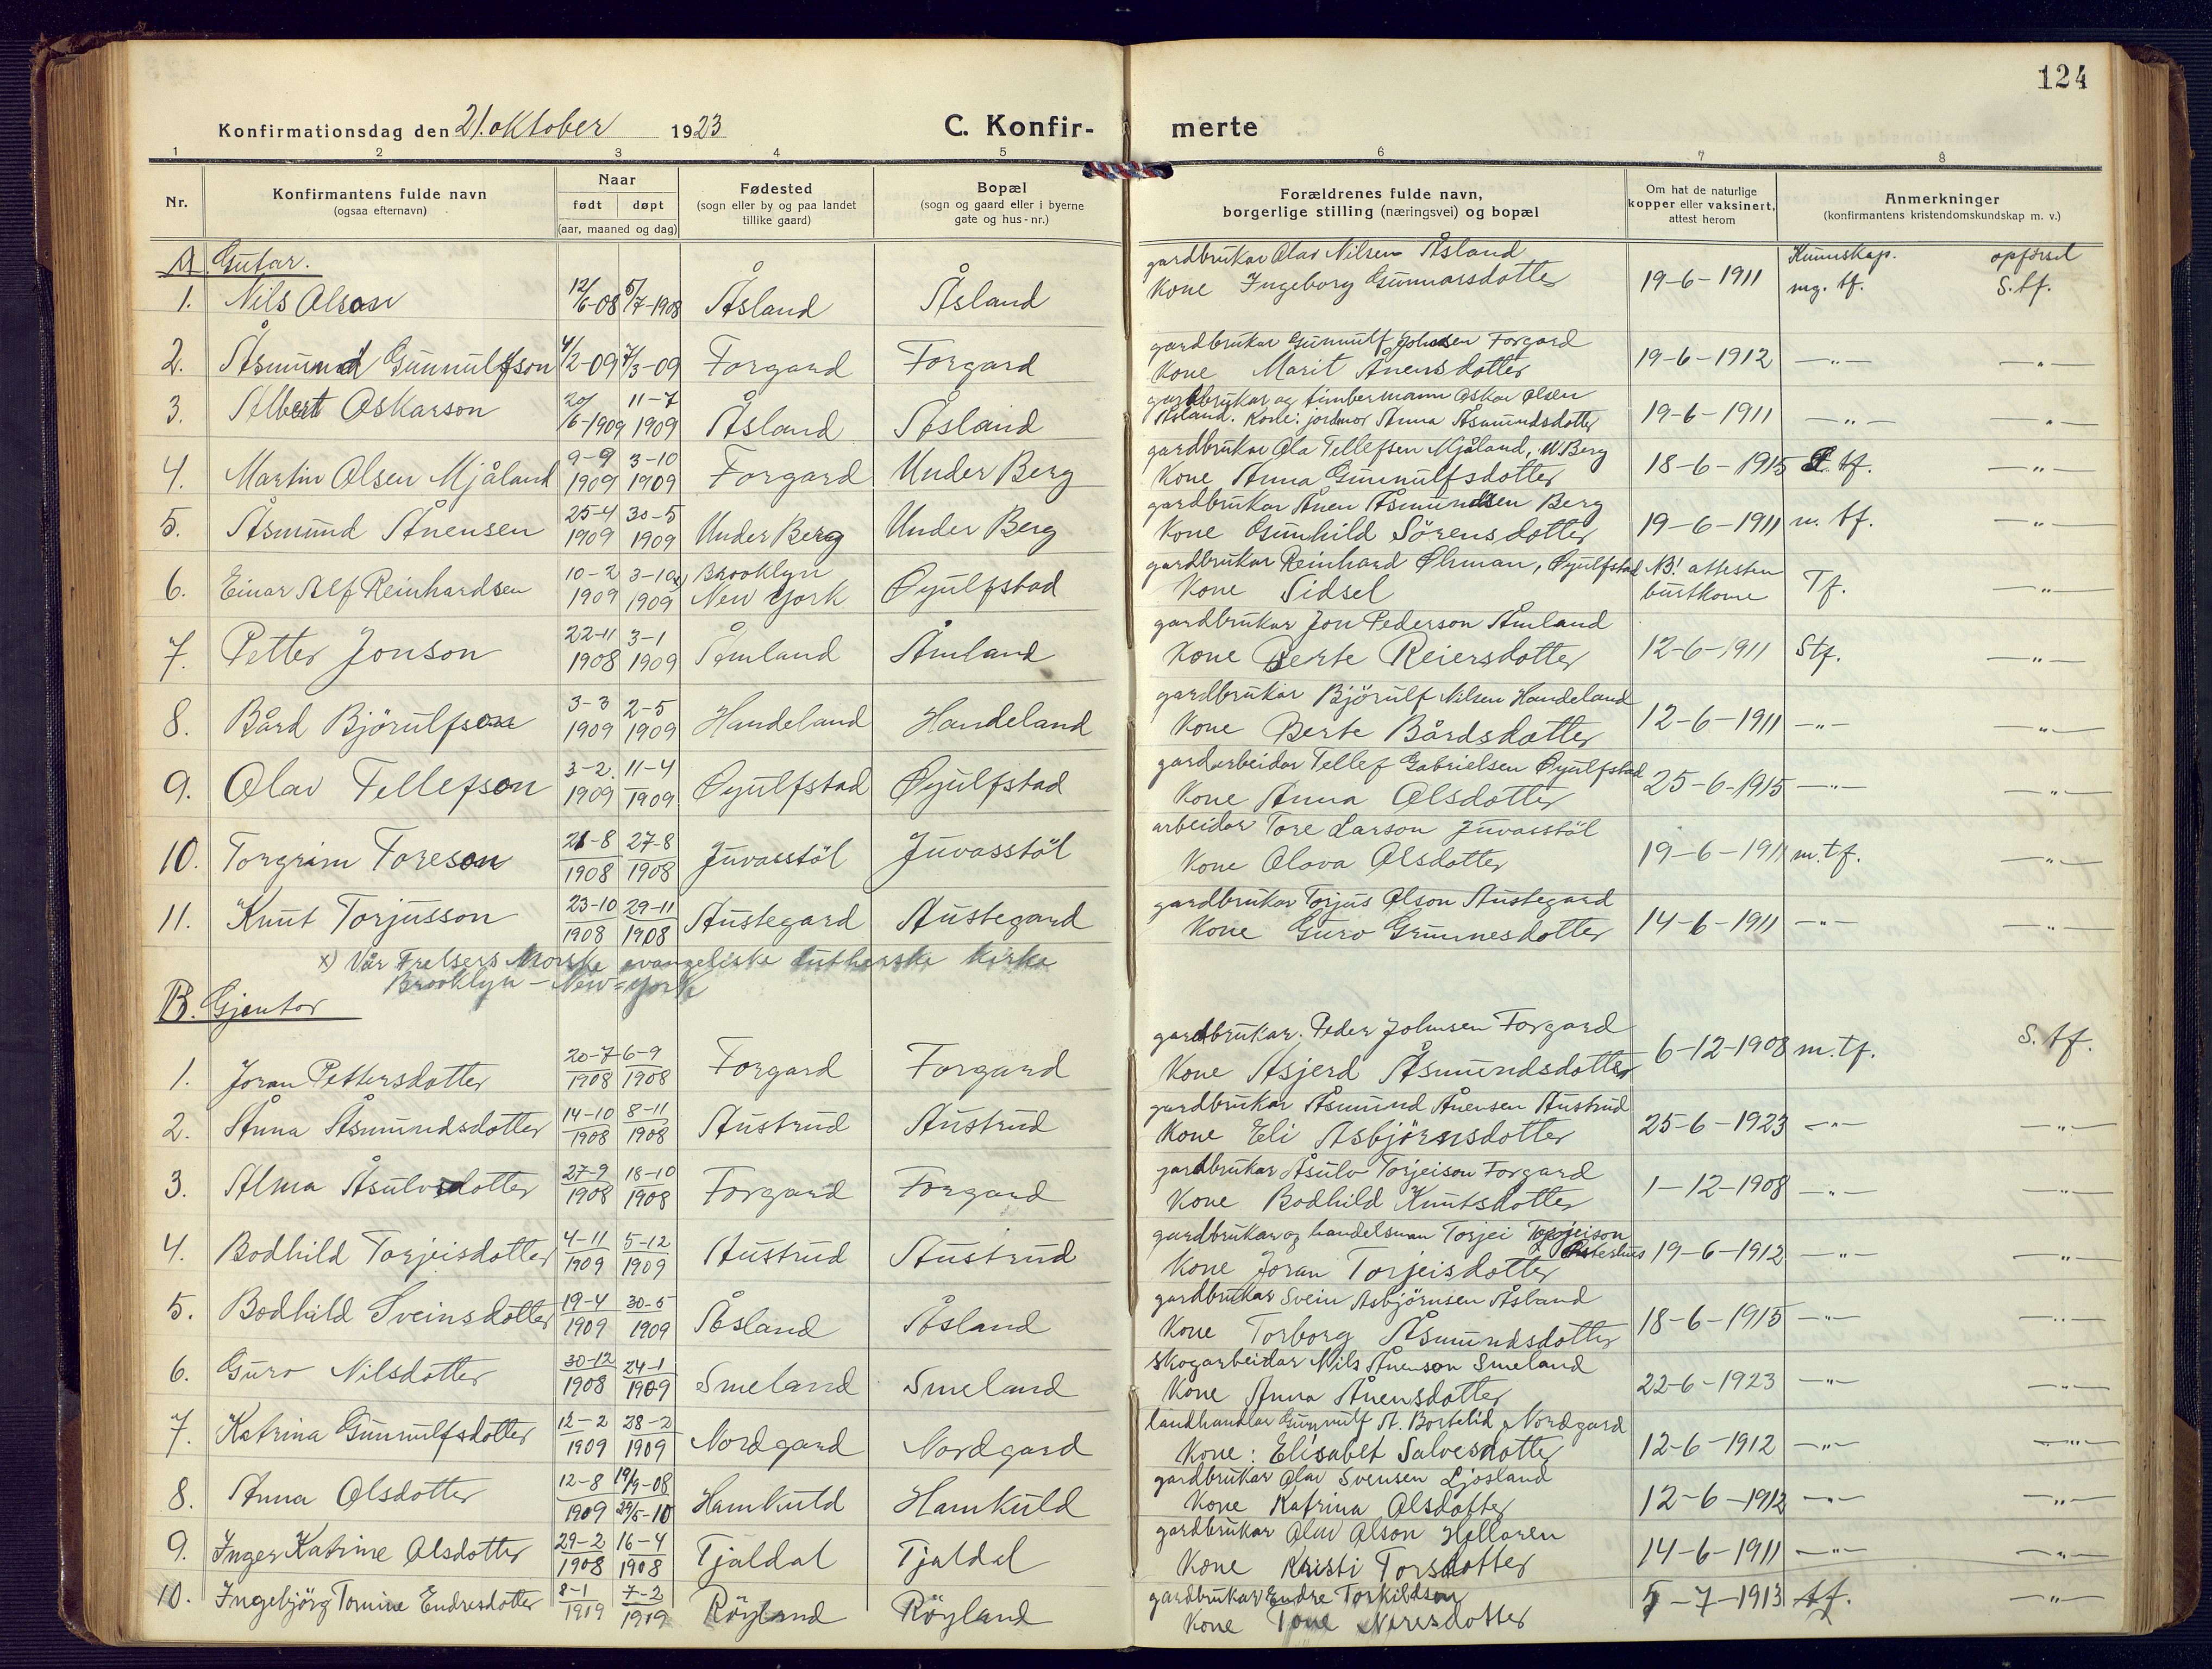 124
Konfirmationsdag den 21. oktober 1923
C. Konfir- merte
1 2 3 4 5 6 7 8
Nr.
Konfirmantens fulde navn
(ogsaa efternavn)
Naar
født døpt
(aar, maaned og dag)
Fødested
(sogn eller by og paa landet
tillike gaard)
Bopæl
(sogn og gaard eller i byerne
gate og hus-nr.)
Forældrenes fulde navn,
borgerlige stilling (næringsvei) og bopæl
Om hat de naturlige
kopper eller vaksinert,
attest herom
Anmerkninger
(konfirmantens kristendomskundskap m. v.)
A Gutar.
Kunnskap. opførsel
1. Nils Olson 12/6-08 5/7-1908 Åsland Åsland gardbrukar Olav Nilsen Åsland
Kone Ingeborg Gunnarsdotter 19-6-1911 mg. tf. S.tf.
2. Åsmund Gunnulfson 4/2-09 7/3-09 Forgard Forgard gardbrukar Gunnulf Johnsen Forgard
Kone Marit Ånensdotter 19-6-1912 —"— —"—
3. Albert Oskarson 20/6-1909 11-7 1909 Åsland Åsland gardbrukar og timbermann Oskar Olsen
Åsland. Kone: jordmor Anna Åsmundsdotter 19-6-1911 —"— "—
4. Martin Olsen Mjåland 9-9 1909 3-10 1909 Forgard Under Berg gardbrukar Ola Tellefsen Mjåland, U. Berg
Kone Anna Gunnulfsdotter 18-6-1915 S. tf. —"—
5. Åsmund Ånensen 25-4 1909 30-5 1909 Under Berg Under Berg gardbrukar Ånen Åsmundsen Berg
Kone Gunhild Sörensdotter 19-6-1911 m. tf. —"—
6. Einar Alf Reinhardsen 10-2 1909 3-10 x) 1909 Brooklyn New York Øyulfstad gardbrukar Reinhard Øhman, Øyulfstad
Kone Sidsel NB! attesten burtkome Tf. —"—
7. Petter Jonson 22-11 1908 3-1 1909 Åmland Åmland gardbrukar Jon Pederson Åmland
Kone Berte Reiersdotter 12-6-1911 Stf. —"—
8. Bård Björulfson 3-3 1909 2-5 1909 Handeland Handeland gardbrukar Björulf Nilsen Handeland
Kone Berte Bårdsdotter 12-6-1911 —"— "—
9. Olav Tellefson 3-2. 1909 11-4 1909 Øyulfstad Øyulfstad gardarbeidar Tellef Gabrielsen Øyulfstad
Kone Anna Olsdotter 25-6-1915 —"— —"—
10. Torgrim Toreson 21-8 1908 27-8 1908 Juvasstöl Juvasstöl arbeidar Tore Larson Juvasstöl
Kone Olava Olsdotter 19-6-1911 m.tf. —"—
11. Knut Torjusson 23-10 1908 29-11 1908 Austegard Austegard gardbrukar Torjus Olson Austegard
Kone Guro Gunnesdotter 14-6-1911 —"— —"—
x) Vår Frelsers Norske evangeliske lutherske kirke
Brooklyn - New-York
B. Gjentor
1. Joran Pettersdotter 20-7 1908 6-9 1908 Forgard Forgard gardbrukar. Peder Johnsen Forgard
Kone Asjerd Åsmundsdotter 6-12-1908 m.tf. S. tf.
2. Anna Åsmundsdotter 14-10 1908 8-11 1908 Austrud Austrud gardbrukar Åsmund Ånensen Austrud
Kone Eli Asbjörnsdotter 25-6-1923 —"— —"—
3. Alma Åsulvsdotter 27-9 1908 18-10 1908 Forgard Forgard gardbrukar Åsulv Torjeison Forgard
Kone Bodhild Knutsdotter 1-12-1908 —"— —"—
4. Bodhild Torjeisdotter 4-11 1909 5-12 1909 Austrud Austrud gardbrukar og handelsman Torjei Torjeison
Kone Joran Torjeisdotter 19-6-1912 —"— "
5. Bodhild Sveinsdotter 19-4 1909 30-5 1909 Åsland Åsland gardbrukar Svein Asbjörnsen Åsland
Kone Torborg Åsmundsdotter 18-6-1915 —"— —"—
6. Guro Nilsdotter 30-12 1908 24-1 1909 Smeland Smeland skogarbeidar Nils Ånenson Smeland
Kone Anna Ånensdotter 22-6-1923 —"— —"—
7. Katrina Gunnulfsdotter 12-2 1909 28-2 1909 Nordgard Nordgard landhandlar Gunnulf A. Bortelid, Nordgard
Kone: Elisabet Salvesdotter 12-6-1912 —"— —"—
8. Anna Olsdotter 12-8 1909 19/9-08 29/5-10 Hamkuld Hamkuld gardbrukar Olav Svensen Ljosland
Kone Katrina Olsdotter 12-6-1912 —"— —"—
9. Inger Katrine Olsdotter 29-2 1908 16-4 1908 Tjaldal Tjaldal gardbrukar Olav Olson Hellaren
Kone Kristi Torsdotter 14-6-1911 —"— —"—
10. Ingebjörg Tomine Endresdotter 8-1 1909 7-2 1909 Röyland Röyland gardbrukar Endre Torkildson
Kone Tone 5-7-1913 tf. —"—